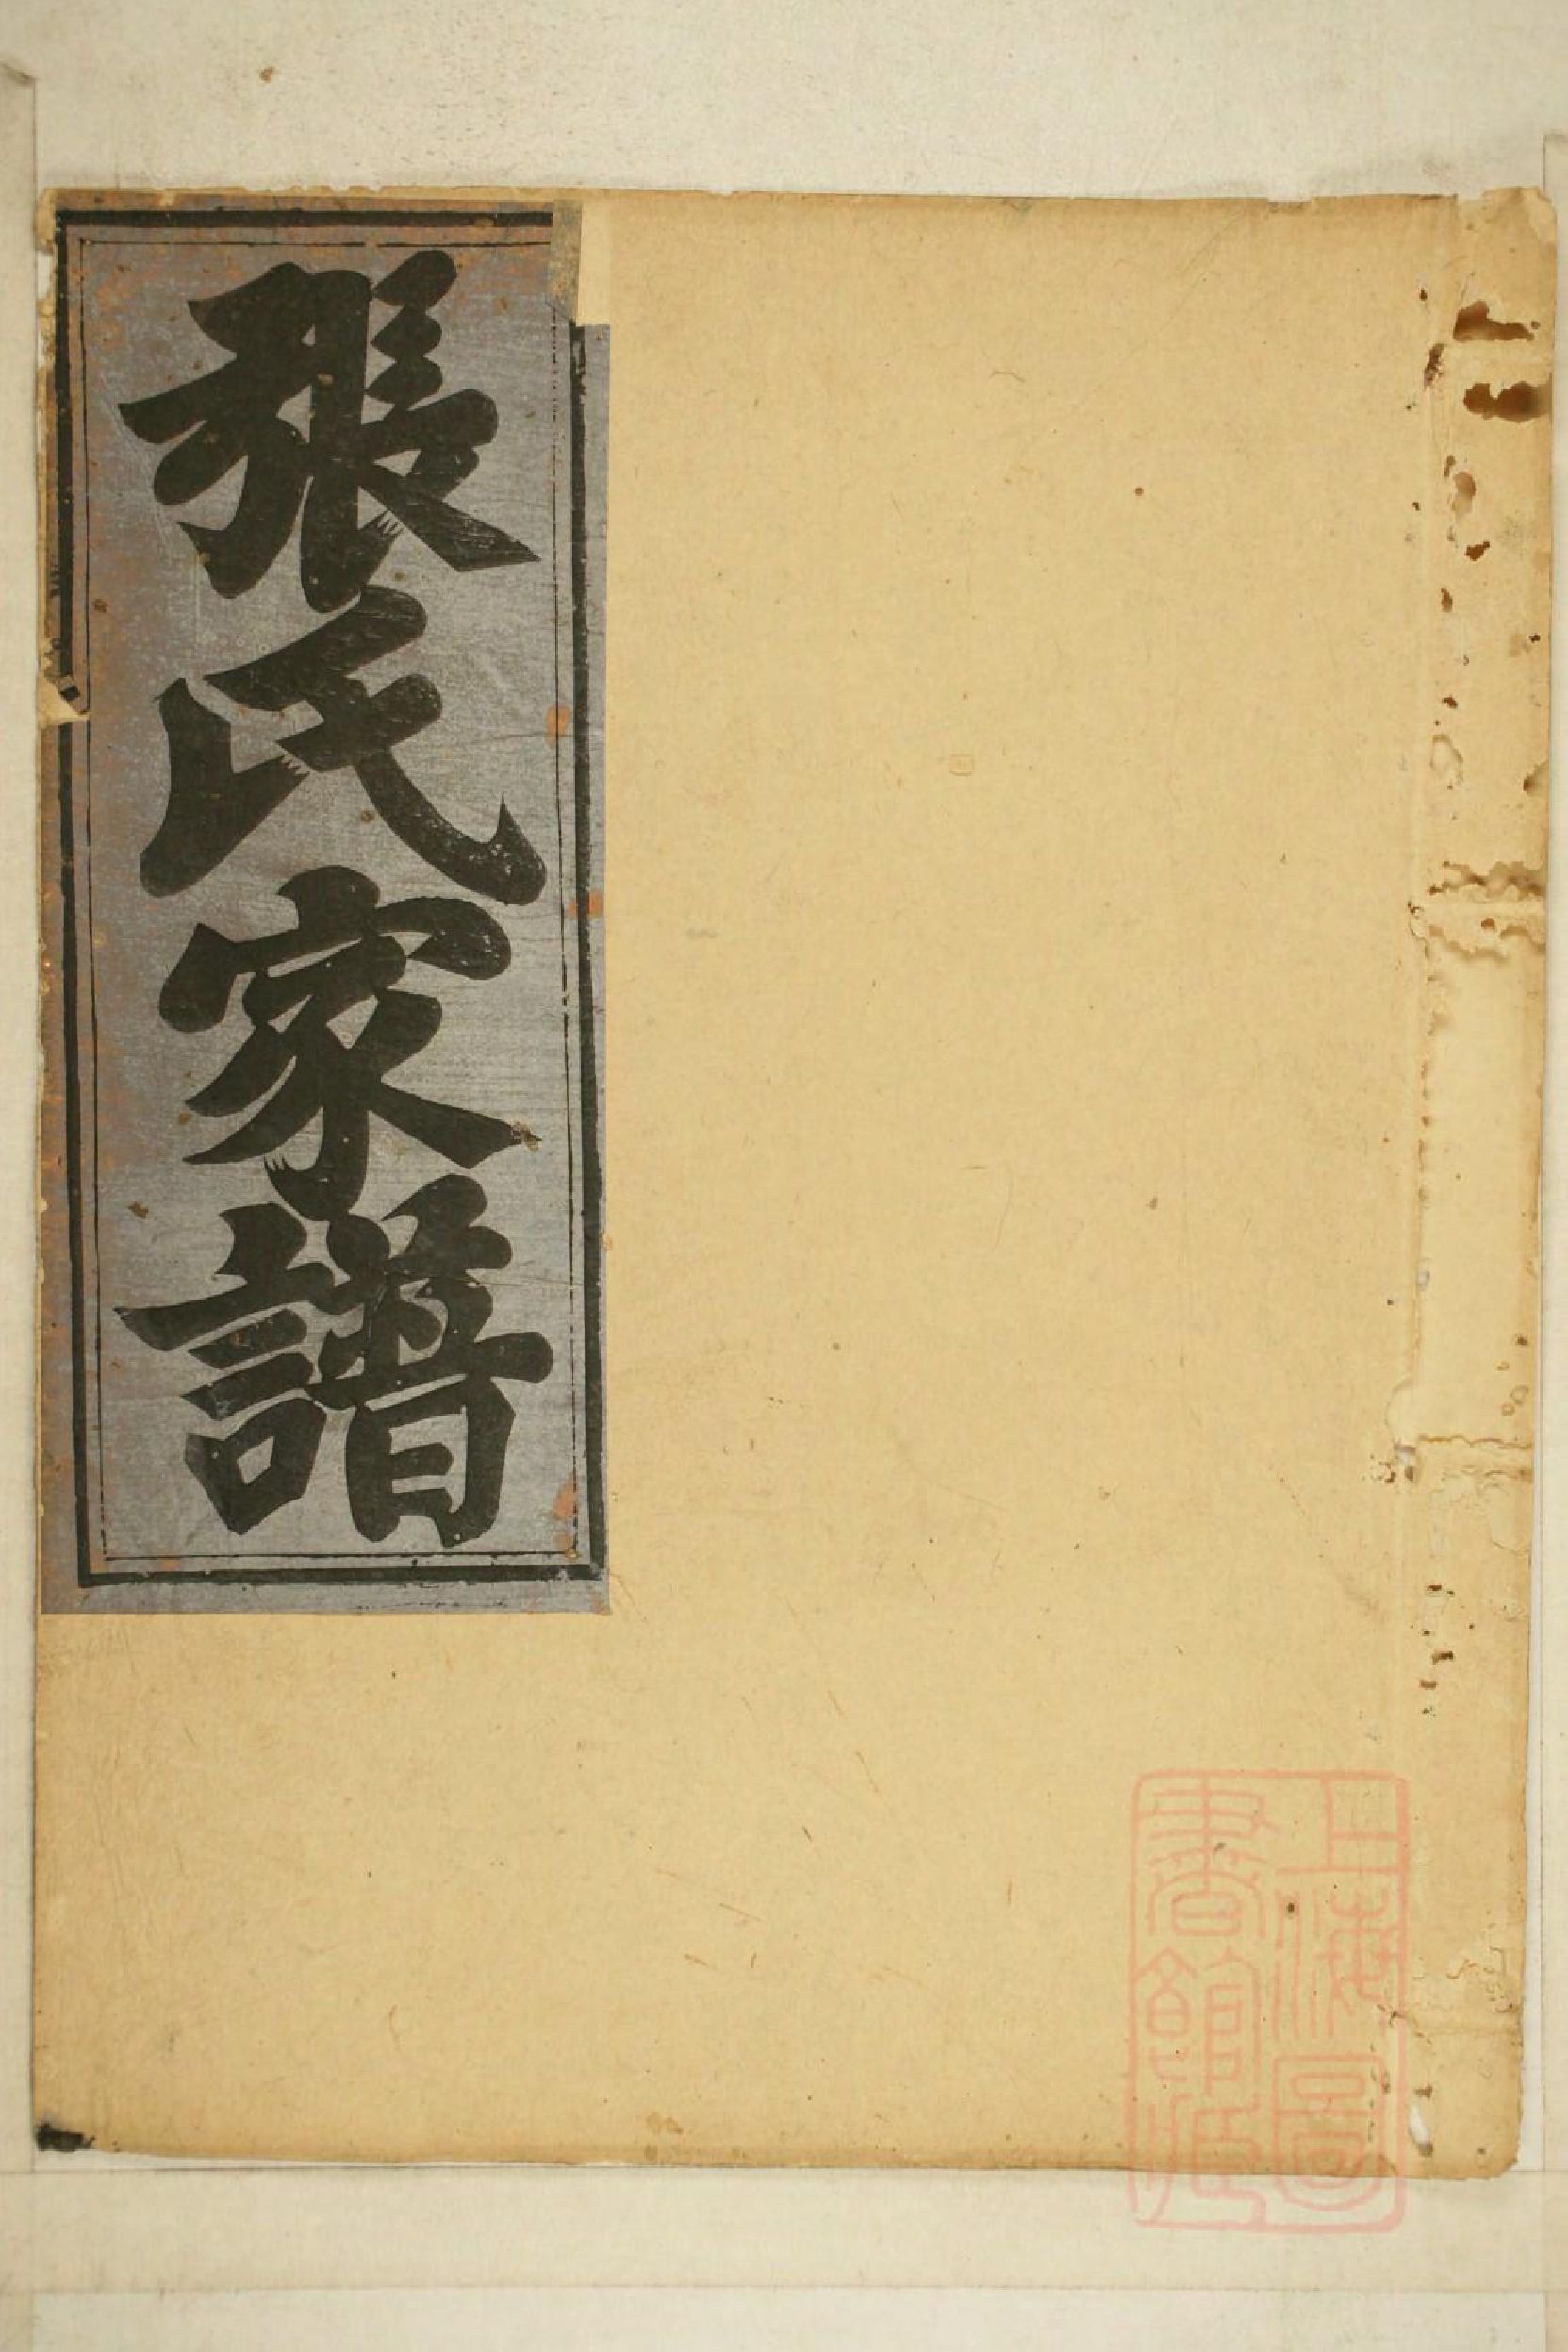 張氏家譜
上海圖
書館藏